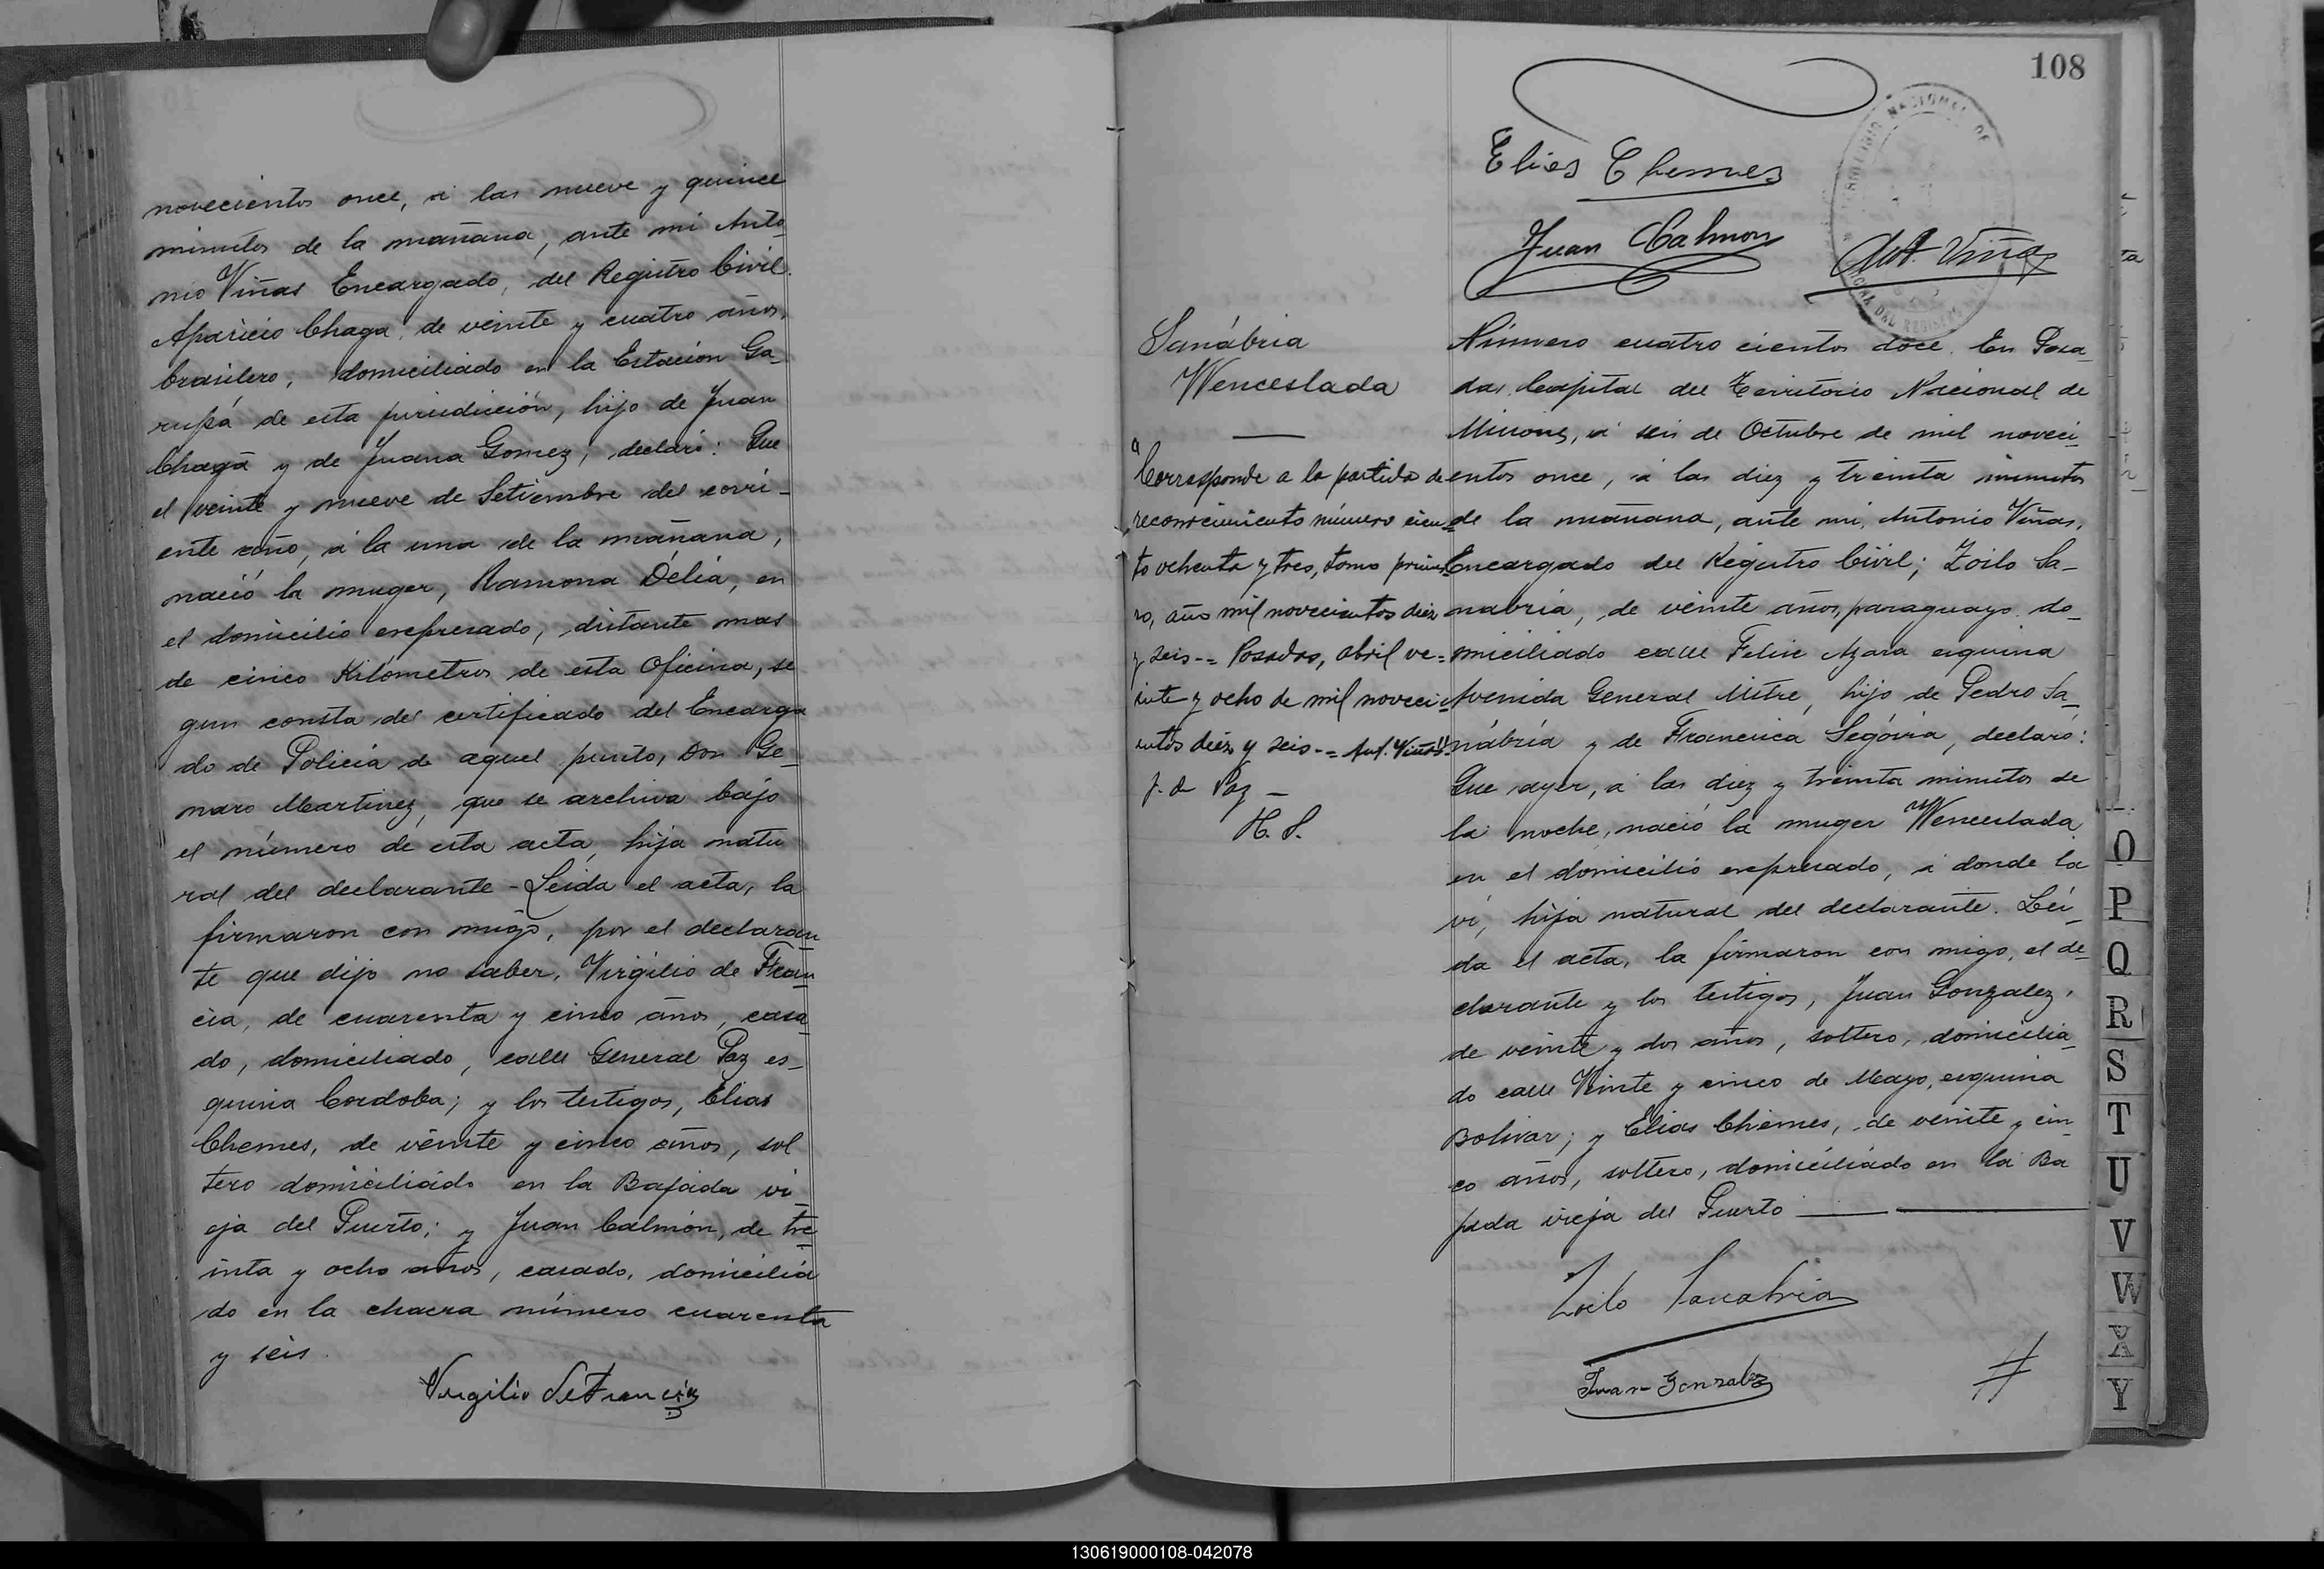 novecientos once, á las nueve y quince
minutos de la mañana, ante mi Anto
nio Viñas Encargado, del Registro Civil.
Aparicio Chaga, de veinte y cuatro años,
brasilero, domiciliado en la Estación Ga-
rupá de esta jurisdicción, hijo de Juan
Chaga y de Juana Gomez, declaró: Que
el veinte y nueve de Setiembre del corri-
ente año, á la una de la mañana,
nació la muger, Ramona Délia, en
el domicilio expresado, distante mas
de cinco Kilómetros de esta Oficina, se
gun consta del certificado del Encarga
do de Policía de aquel punto, Don Ge-
naro Martinez, que se archiva bajo
el número de esta acta, hija natu
ral del declarante - Leida el acta, la
firmaron con migo, por el declaran
te que dijo no saber, Virgilio de Fran
cia, de cuarenta y cinco años, casa
do, domiciliado, calle General Paz es-
quina Cordoba; y los testigos, Elias
Chemes, de veinte y cinco años, sol
tero domiciliado en la Bajada vi
eja del Puerto; y Juan Calmón, de tre
inta y ocho años, casado, domicilia
do en la chacra número cuarenta
y seis.
Virgilio de Francia
108
Elias Chemes
Juan Calmon
Ant. Viñas
Sanábria
Wenceslada
"Corresponde a la partida de
reconocimiento número cien=
to ochenta y tres, tomo prime=
ro, año mil novecientos diez
y seis-= Posadas, abril ve=
inte y ocho de mil noveci=
entos diez y seis-= Ant. Viñas"=
J. de Paz -
H. S.
Número cuatro cientos doce. En Posa-
das, Capital del Territorio Nacional de
Misiones, á seis de Octubre de mil noveci-
entos once, á las diez y treinta minutos
de la mañana, ante mi, Antonio Viñas,
Encargado del Registro Civil; Zoilo Sa-
nabria, de veinte años, paraguayo. do-
miciliado calle Felix Azara esquina
Avenida General Mitre, hijo de Pedro Sa-
nábria y de Francisca Segóvia, declaró:
Que ayer, á las diez y treinta minutos de
la noche, nació la muger Wenceslada
en el domicilio expresado, á donde la
vi, hija natural del declarante. Léi-
da el acta, la firmaron con migo, el de-
clarante y los testigos, Juan Gonzalez,
de veinte y dos años, soltero, domicilia-
do calle Veinte y cinco de Mayo, esquina
Bolivar; y Elias Chémes, de veinte y cin-
co años, soltero, domiciliado en la Ba
jada vieja del Puerto
Zoilo Sanabria
Juan Gonzalez
O
P
Q
R
S
T
U
V
W
X
Y
130619000108-042078